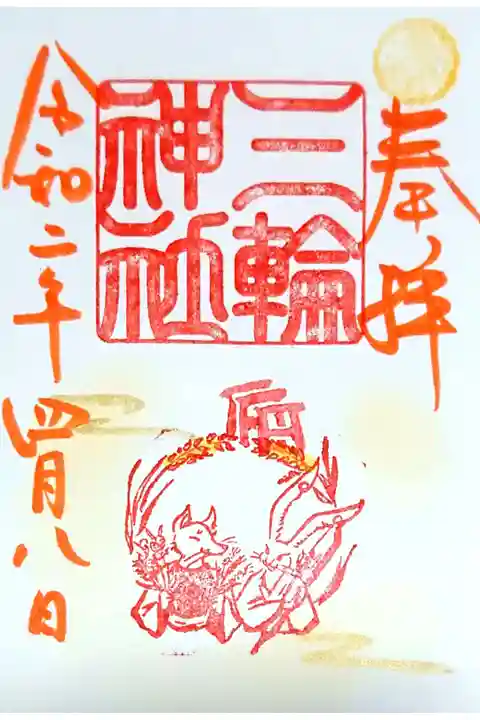 奉拝
三輪
神社
令和二年四月八日